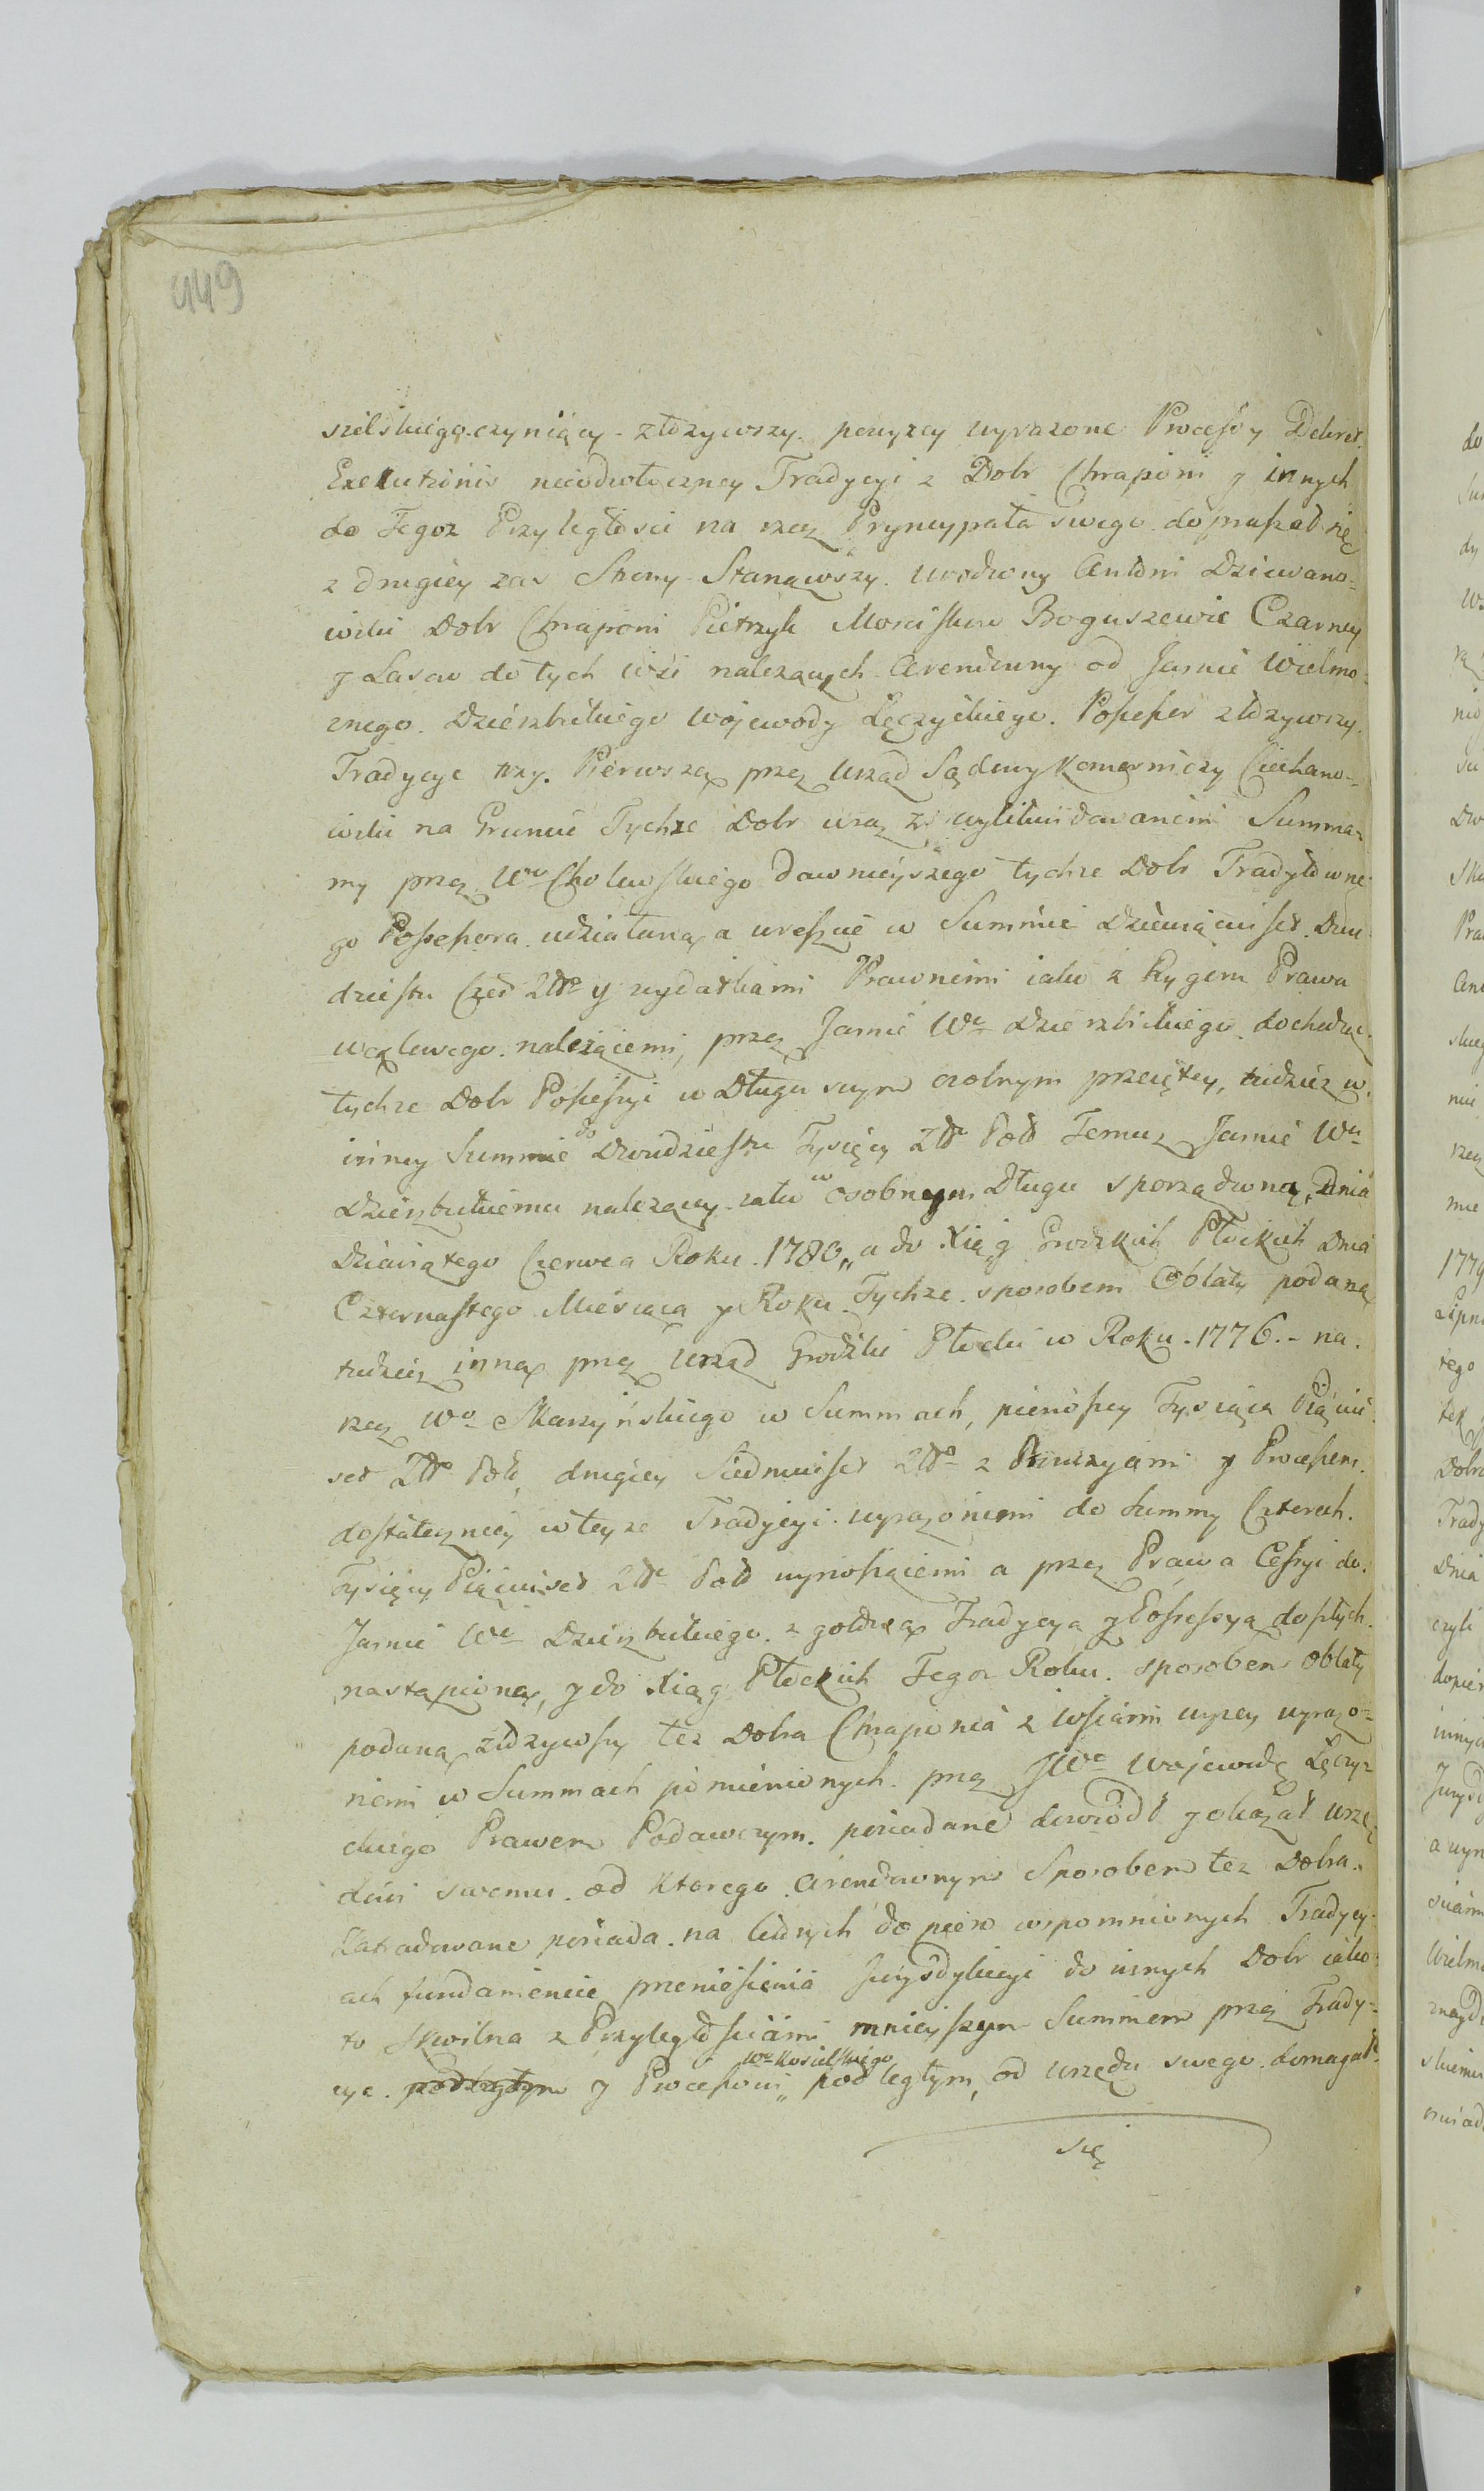 449
sielskiego czyniący złożywszy powyzey wyrazone Processy Dekret
Executionis nieodwłoczney Tradycyi z Dobr Chraponi y innych
do Tegoz Przyległosci na rzecz Pryncypała swego dopraszał się
z drugiey zas Strony Stanąwszy Urodzony Antoni Dziewano-
wski Dobr Chraponi Pietrzyk Boguszewic Czarney
y Lasow do tych Wsi nalezących Arendowny od Jasnie Wielmo-
znego Dzierzbickiego Wojewody Łęczyckiego Possessor złozywszy
Tradycye trzy. Pierwszą przez Urząd Sądowy Komorniczy Ciechano-
wski na Gruncie Tychze Dobr wraz z wylikwidowanemi Summa-
my przez Wo Cholewskiego dawnieyszego tychze Dobr Tradytowne-
go Possessora udziałaną a w Summie Dziewięciuset Dwu-
dziestu Złto y wydatkami Prawnemi iako z Prawa
nalezącemi, przez Jasnie We Dzierzbickiego
tychze Dobr Possessyi w Długu swym osobnym przeiętey, tudziez w
inney Summie do Dwudziestu Tysięcy Złto Pol Temuz Jasnie Wu
Dzierzbickiemu nalezącey iako w osobnym Długu sporządzoną, Dnia
Dziewiątego Czerwca Roku 1780 „ a do Xiąg Grodzkich Płockich Dnia
Czternastego Miesiąca y Roku Tychze sposobem Oblaty podaną
tudziez inną przez Urząd Grodzki Płocki w Roku 1776. na
rzecz Wo Skarzyńskiego w Summach, pierwszey Tysiąca Pięciu
set Złto Pol, drugiey Siedmiuset Złto z Prowizyami y Processem
dostateczniey w teyze Tradycyi wyrazonemi do Summy Czterech
Tysięcy Pięciuset Złto Pol wynoszącemi a przez Prawa Cessyi do
Jasnie We Dzierzbickiego z Tradycyą y Possessyą
nastąpioną, y do Xiąg Płockich Tegoz Roku sposobem Oblaty
podaną złozywszy tez Dobra Chraponia z Wsiami wyzey wyrazo-
nemi w Summach pomienionych przez JWo Wojewodę Łęczy-
ckiego Prawem Podawczym posiadane dowiodł y okazał Urzę-
dowi swemu od ktorego Arendownym Sposobem tez Dobra
Zatradowane posiada na takowych dopiero wspomnionych Tradycy-
ach fundamencie przeniesienia Jurysdykcyi do innych Dobr iako
to Skwilna z Przyległosciami mnieyszym Summom przez Trady-
cye podległym y Processowi „ Wo Kosielskiego podległym, od Urzędu swego domagał
się